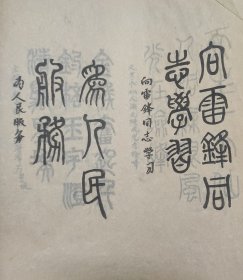 向雷鋒同
志學習
向雷锋同志学习
為人民
服務
为人民服务